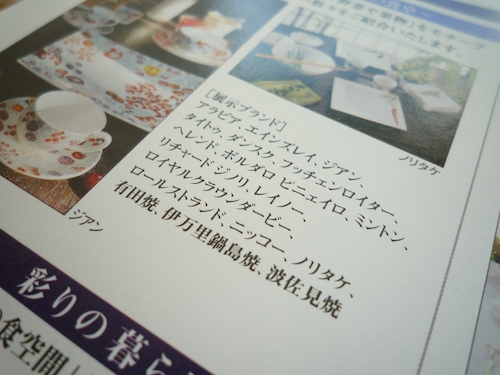 の食卓～
野菜や果物」をモチーフ
数々をご紹介いたします。
ノリタケ
［展示ブランド］
アラビア、エインズレイ、ジアン、
タイトウ、ダンスク、フッチェンロイター、
ヘレンド、ボルダロ ピニェイロ、ミントン、
リチャード ジノリ、レイノー、
ロイヤルクラウンダービー、
ロールストランド、ニッコー、ノリタケ、
有田焼、伊万里鍋島焼、波佐見焼
ジアン
彩りの暮ら
の食空間